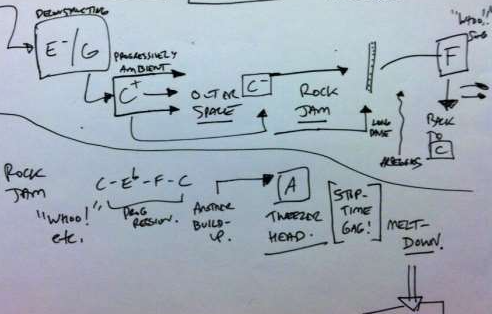 DECONSTRUCTING
E-/G
PROGRESSIVELY
AMBIENT
C+
OUTER
SPACE
C-
ROCK
JAM
LONG
ARPEGGIOS
"WHOO!"
SONG
F
BACK
TO
C
ROCK
JAM
"WHOO!"
etc.
C-Eb-F-C
PROG
RESSION.
ANOTHER
BUILD-
UP.
A
TWEEZER
HEAD.
STOP-
TIME
GAG!
MELT-
DOWN.